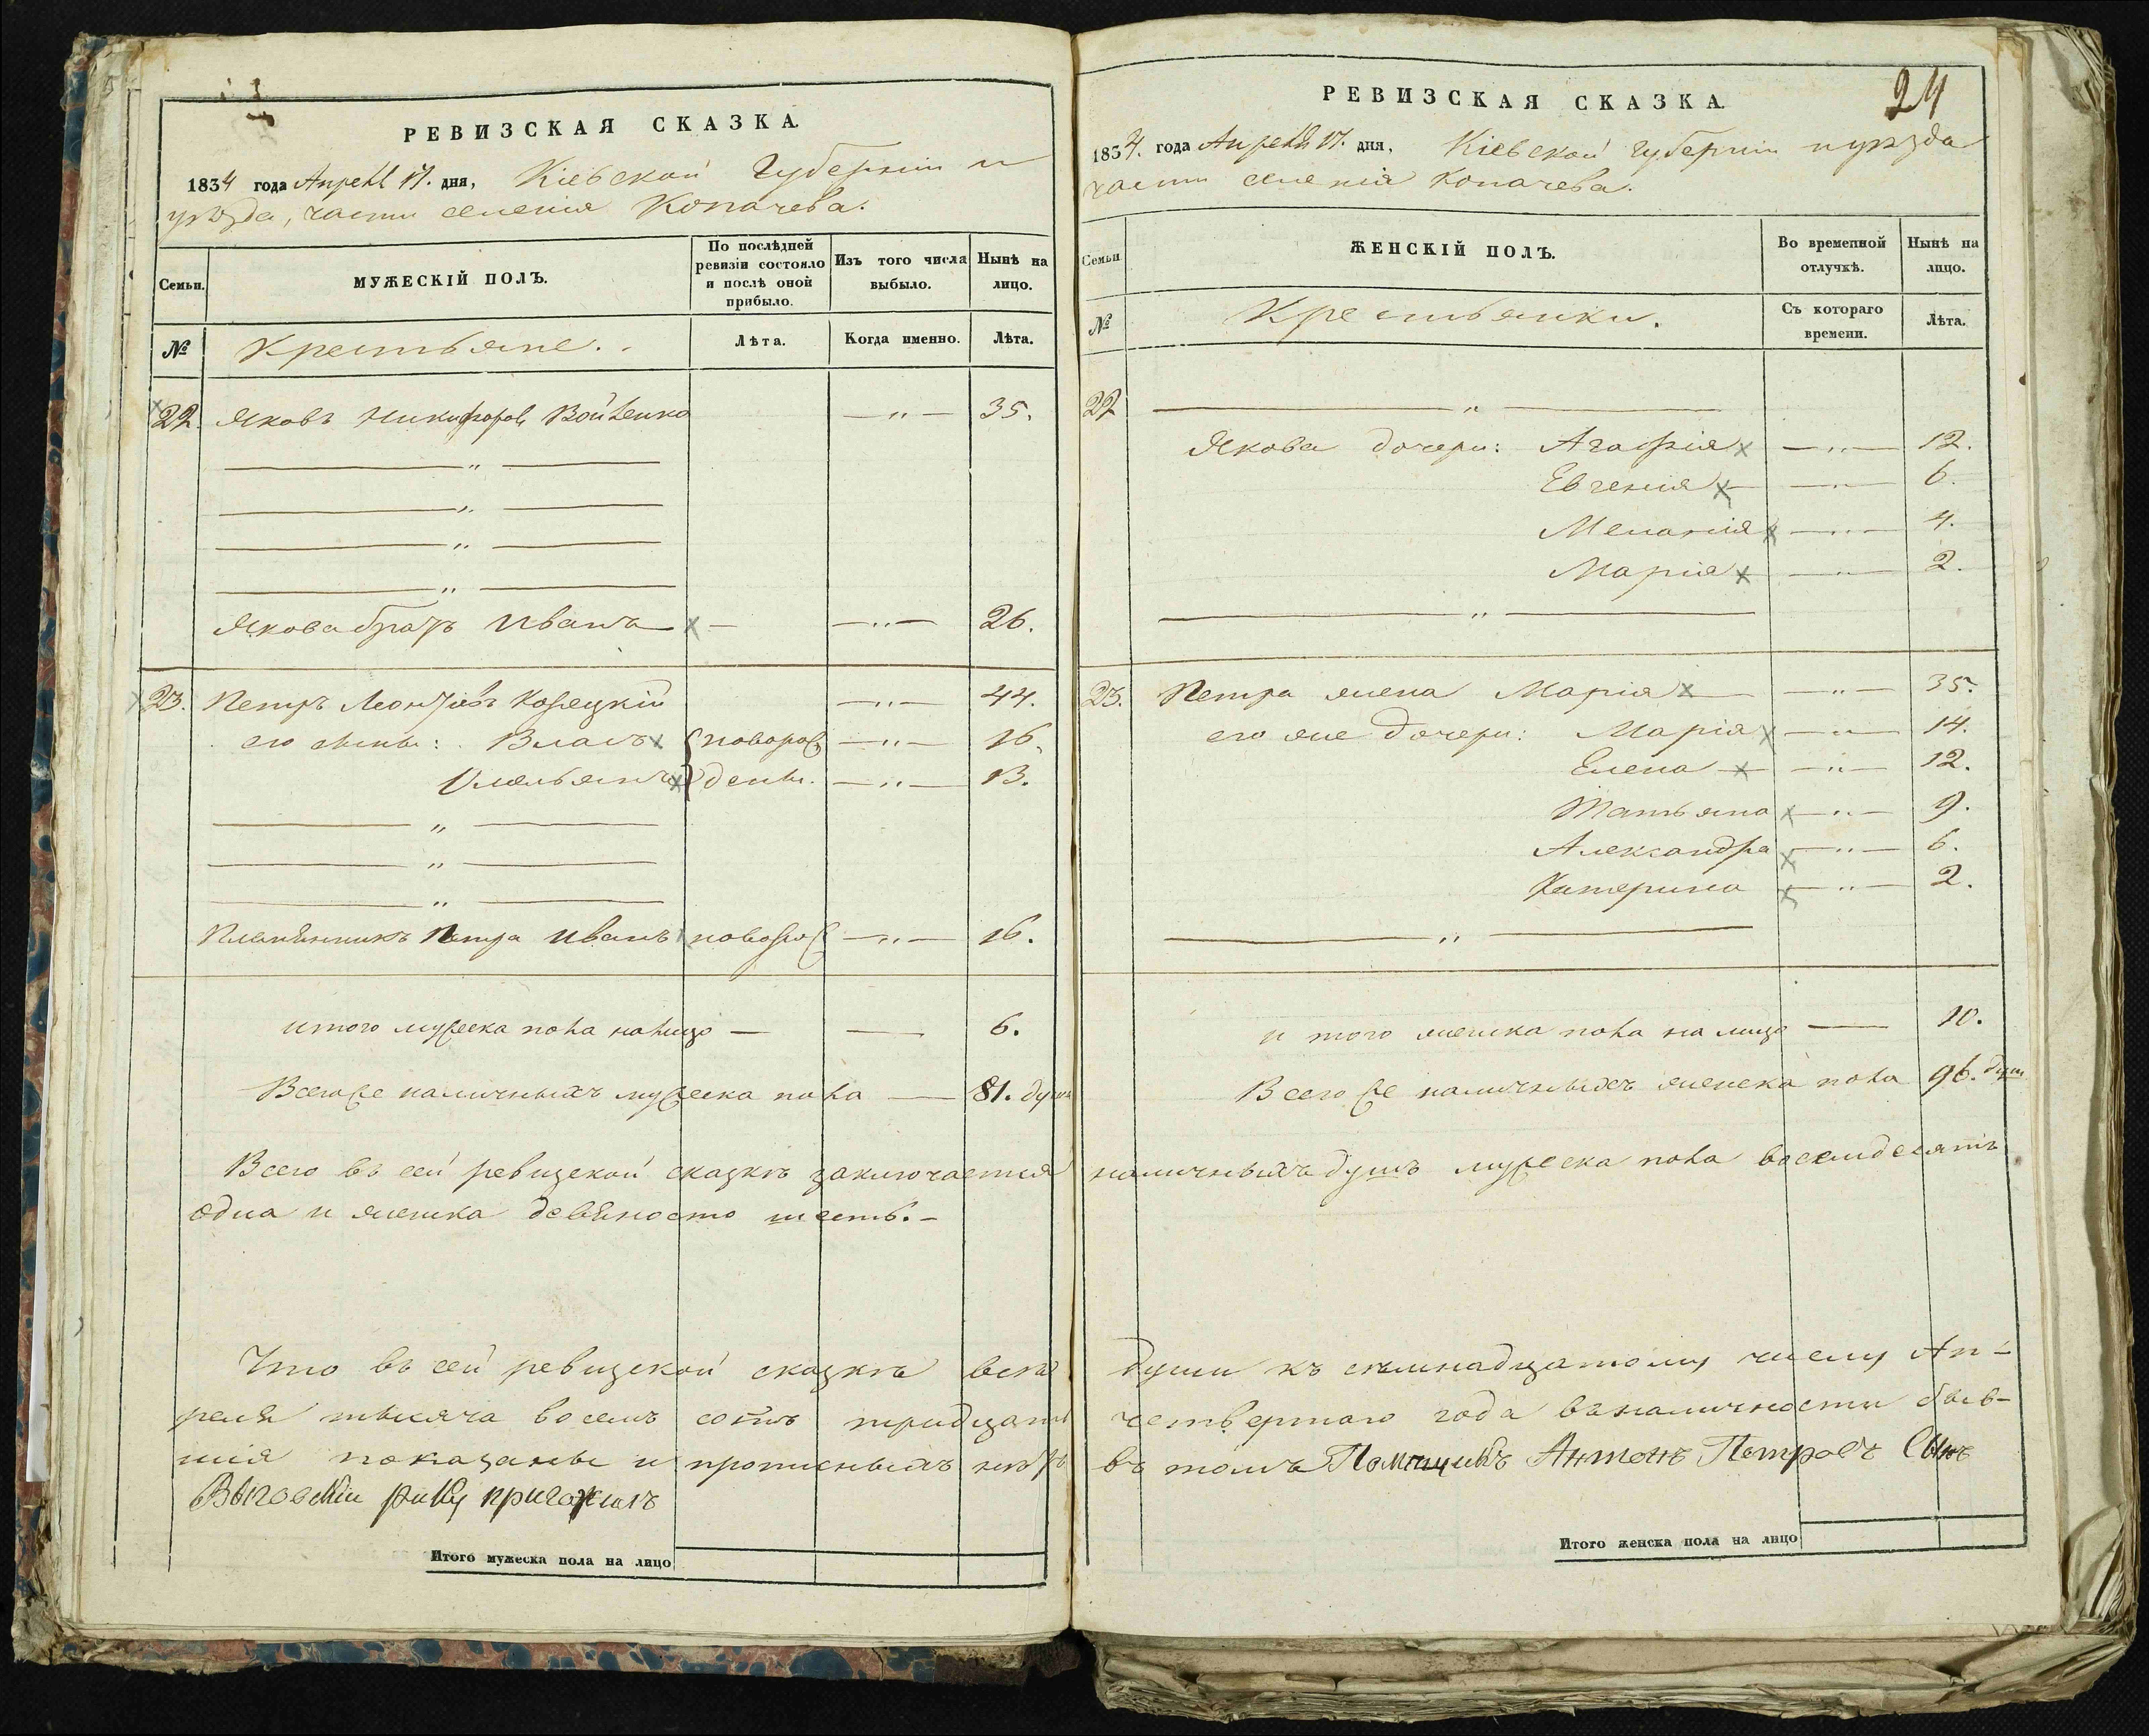 РЕВИЗСКАЯ СКАЗКА.
1834 года Апреля 17. дня, Кіевской Губерніи и
уѣзда, части селенія Копачева.
Семьи.
МУЖЕСКІЙ ПОЛЪ.
По послѣдней ревизіи состояло и послѣ оной прибыло.
Изъ того числа выбыло.
Нынѣ на лицо.
№
Крестьяне.
Лѣта.
Когда именно.
Лѣта.
22. Яковъ Никифоров Войтенко — „ — 35.
— „ —
— „ —
— „ —
— „ —
Якова братъ Иванъ — — „ — 26.
23. Петръ Леонтіевъ Корецкій — „ — 44.
его сыны: Власъ новорож — „ — 16.
Емельянъ дены. — „ — 13.
— „ —
— „ —
— „ —
Племянникъ Петра Иванъ новорож — „ — 16.
итого мужеска пола налицо — — 6.
Всего же наличныхъ мужеска пола — 81. душа
Всего въ сей ревизской сказкѣ заключается
одна и женска девяносто шесть. –
Что въ сей ревизской сказкѣ всѣ
реля тысяча восемъ сотъ тридцать
шія показаны и прописныхъ нѣтъ
Выговскій руку приложилъ
Итого мужеска пола на лицо
24
РЕВИЗСКАЯ СКАЗКА.
1834. года Апреля 17. дня, Кіевской Губерніи и уѣзда
части селенія Копачева.
Семьи
ЖЕНСКІЙ ПОЛЪ.
Во временной отлучкѣ.
Нынѣ на лицо.
№
Крестьянки.
Съ котораго времени.
Лѣта.
22 — „ —
Якова дочери: Агафія — „ — 12.
Евгенія — „ — 6.
Меланія — „ — 4.
Марія — „ — 2.
— „ —
23. Петра жена Марія — „ — 35.
его же дочери: Марія — „ — 14.
Елена — „ — 12.
Татьяна — „ — 9.
Александра — „ — 6.
Катерина — „ — 2.
— „ —
и того женска пола на лицо — 10.
Всего же наличныхъ женска пола 96. душ
наличныхъ душъ мужеска пола восемдесятъ
души къ семнадцатому числу Ап-
четвертаго года въ наличности быв-
въ томъ Помѣщикъ Антонъ Петровъ Сынъ
Итого женска пола на лицо